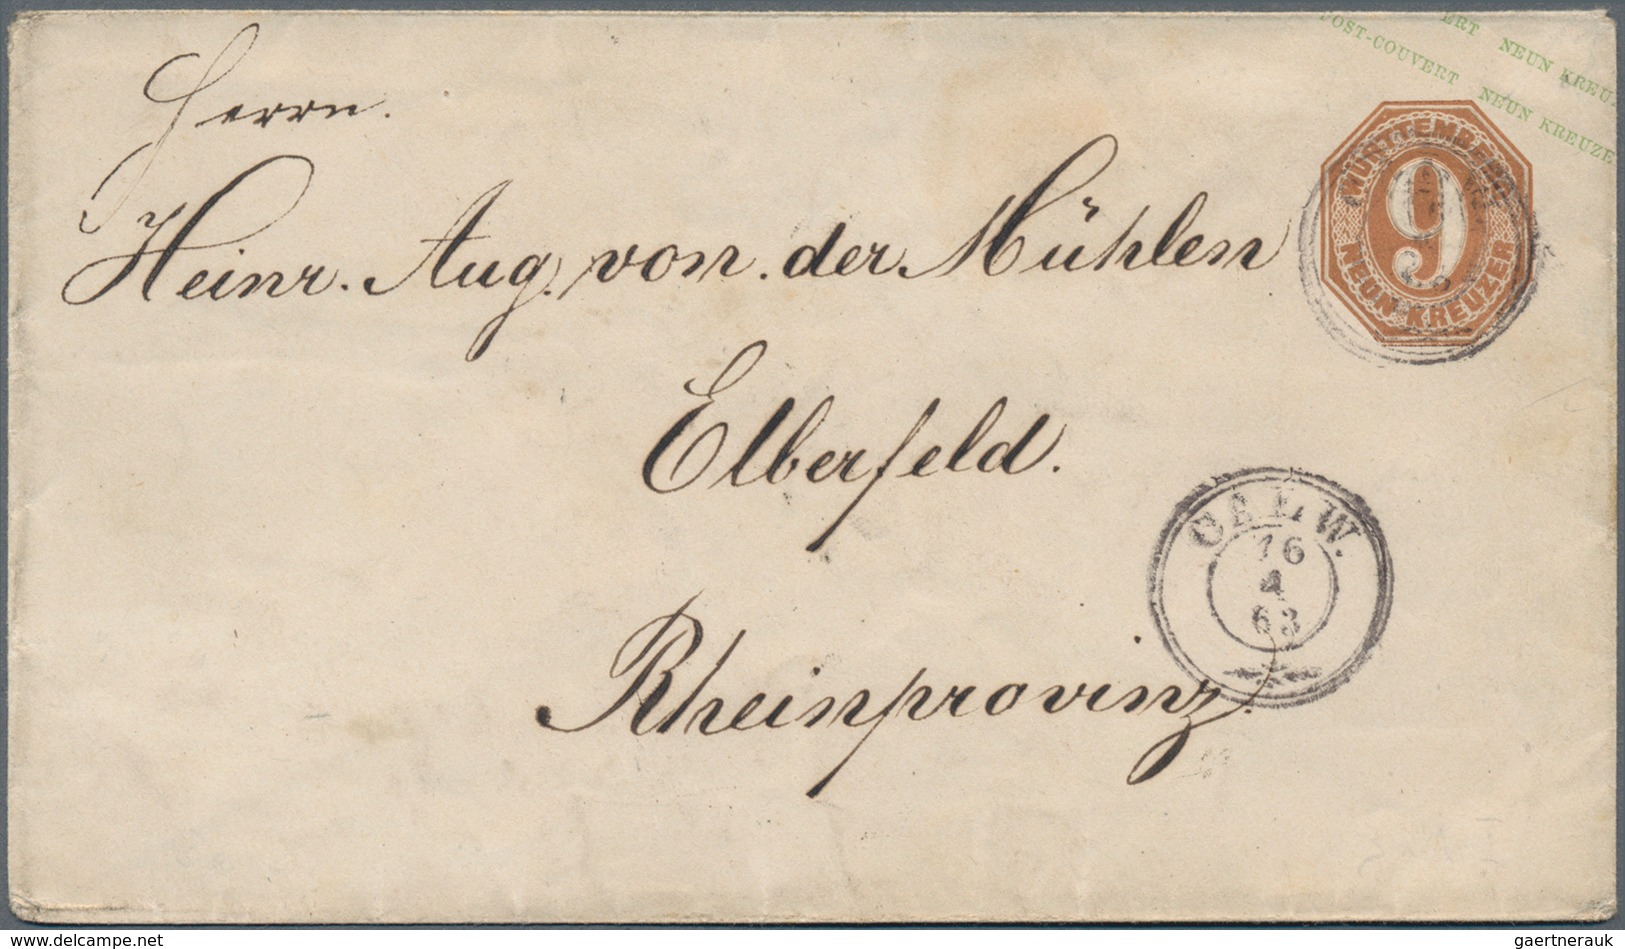 ERT NEUN KREU
POST-COUVERT NEUN KREUZE
Herrn.
WÜRTTEMBERG
9
NEUN KREUZER
Heinr. Aug. von der Mühlen
Elberfeld.
CALW.
16
4
63
Rheinprovinz.
www.delcampe.net
gaertnerauk